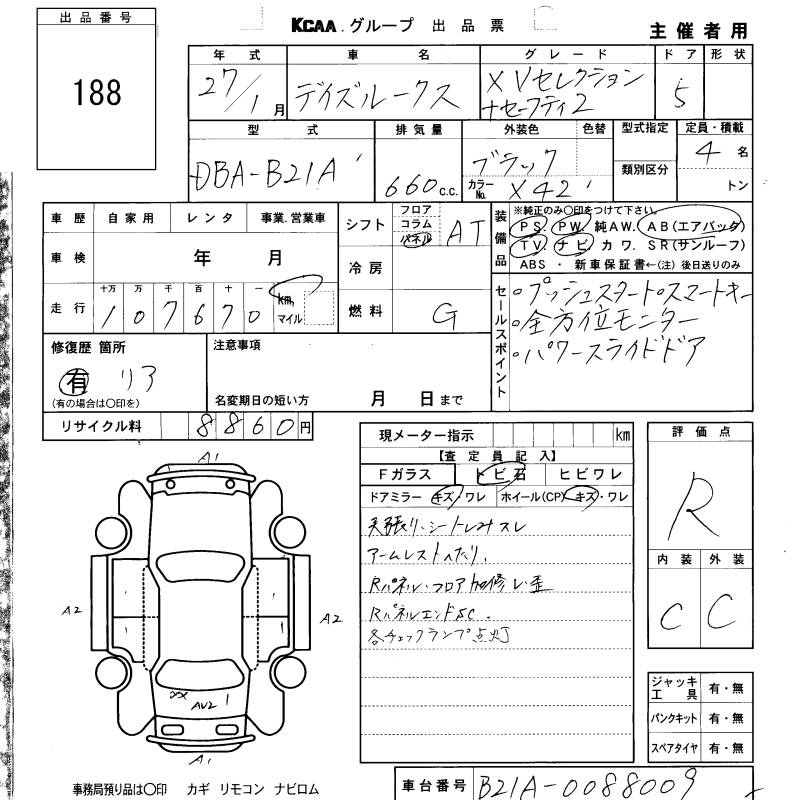 出品番号
188
KCAA.グループ 出品票
主催者用
年式 車名 グレード ドア 形状
27/1月 デイズルークス XVセレクション
+セーフティ2 5
型式 排気量 外装色 色替 型式指定 定員・積載
DBA-B21A 660c.c. ブラック 4名
カラーNo. X42 類別区分 トン
車歴 自家用 レンタ 事業.営業車
シフト フロア コラム パネル AT
装備品 ※純正のみ○印をつけて下さい。
PS. PW. 純AW. AB(エアバッグ)
TV ナビ カワ. SR(サンルーフ)
ABS ・ 新車保証書←(注) 後日送りのみ
車検 年 月
冷房
走行 十万 万 千 百 十 一
107670 km, マイル
燃料 G
セールスポイント
・プッシュスタート・スマートキー
・全方位モニター
・パワースライドドア
修復歴 箇所
有 リア
(有の場合は○印を)
注意事項
名変期日の短い方 月 日まで
リサイクル料 8860円
現メーター指示 km
【査定員記入】
Fガラス トビ石 ヒビワレ
ドアミラー キズ・ワレ ホイール(CP) キズ・ワレ
天張り・シートしみスレ
アームレストへたり.
Rパネル・フロア加修し歪
RパネルエンドSC.
各チェックランプ点灯
評価点
R
内装 外装
C C
A1
A2
A2
AU2
A1
ジャッキ工具 有・無
パンクキット 有・無
スペアタイヤ 有・無
事務局預り品は○印 カギ リモコン ナビロム
車台番号 B21A-0088009